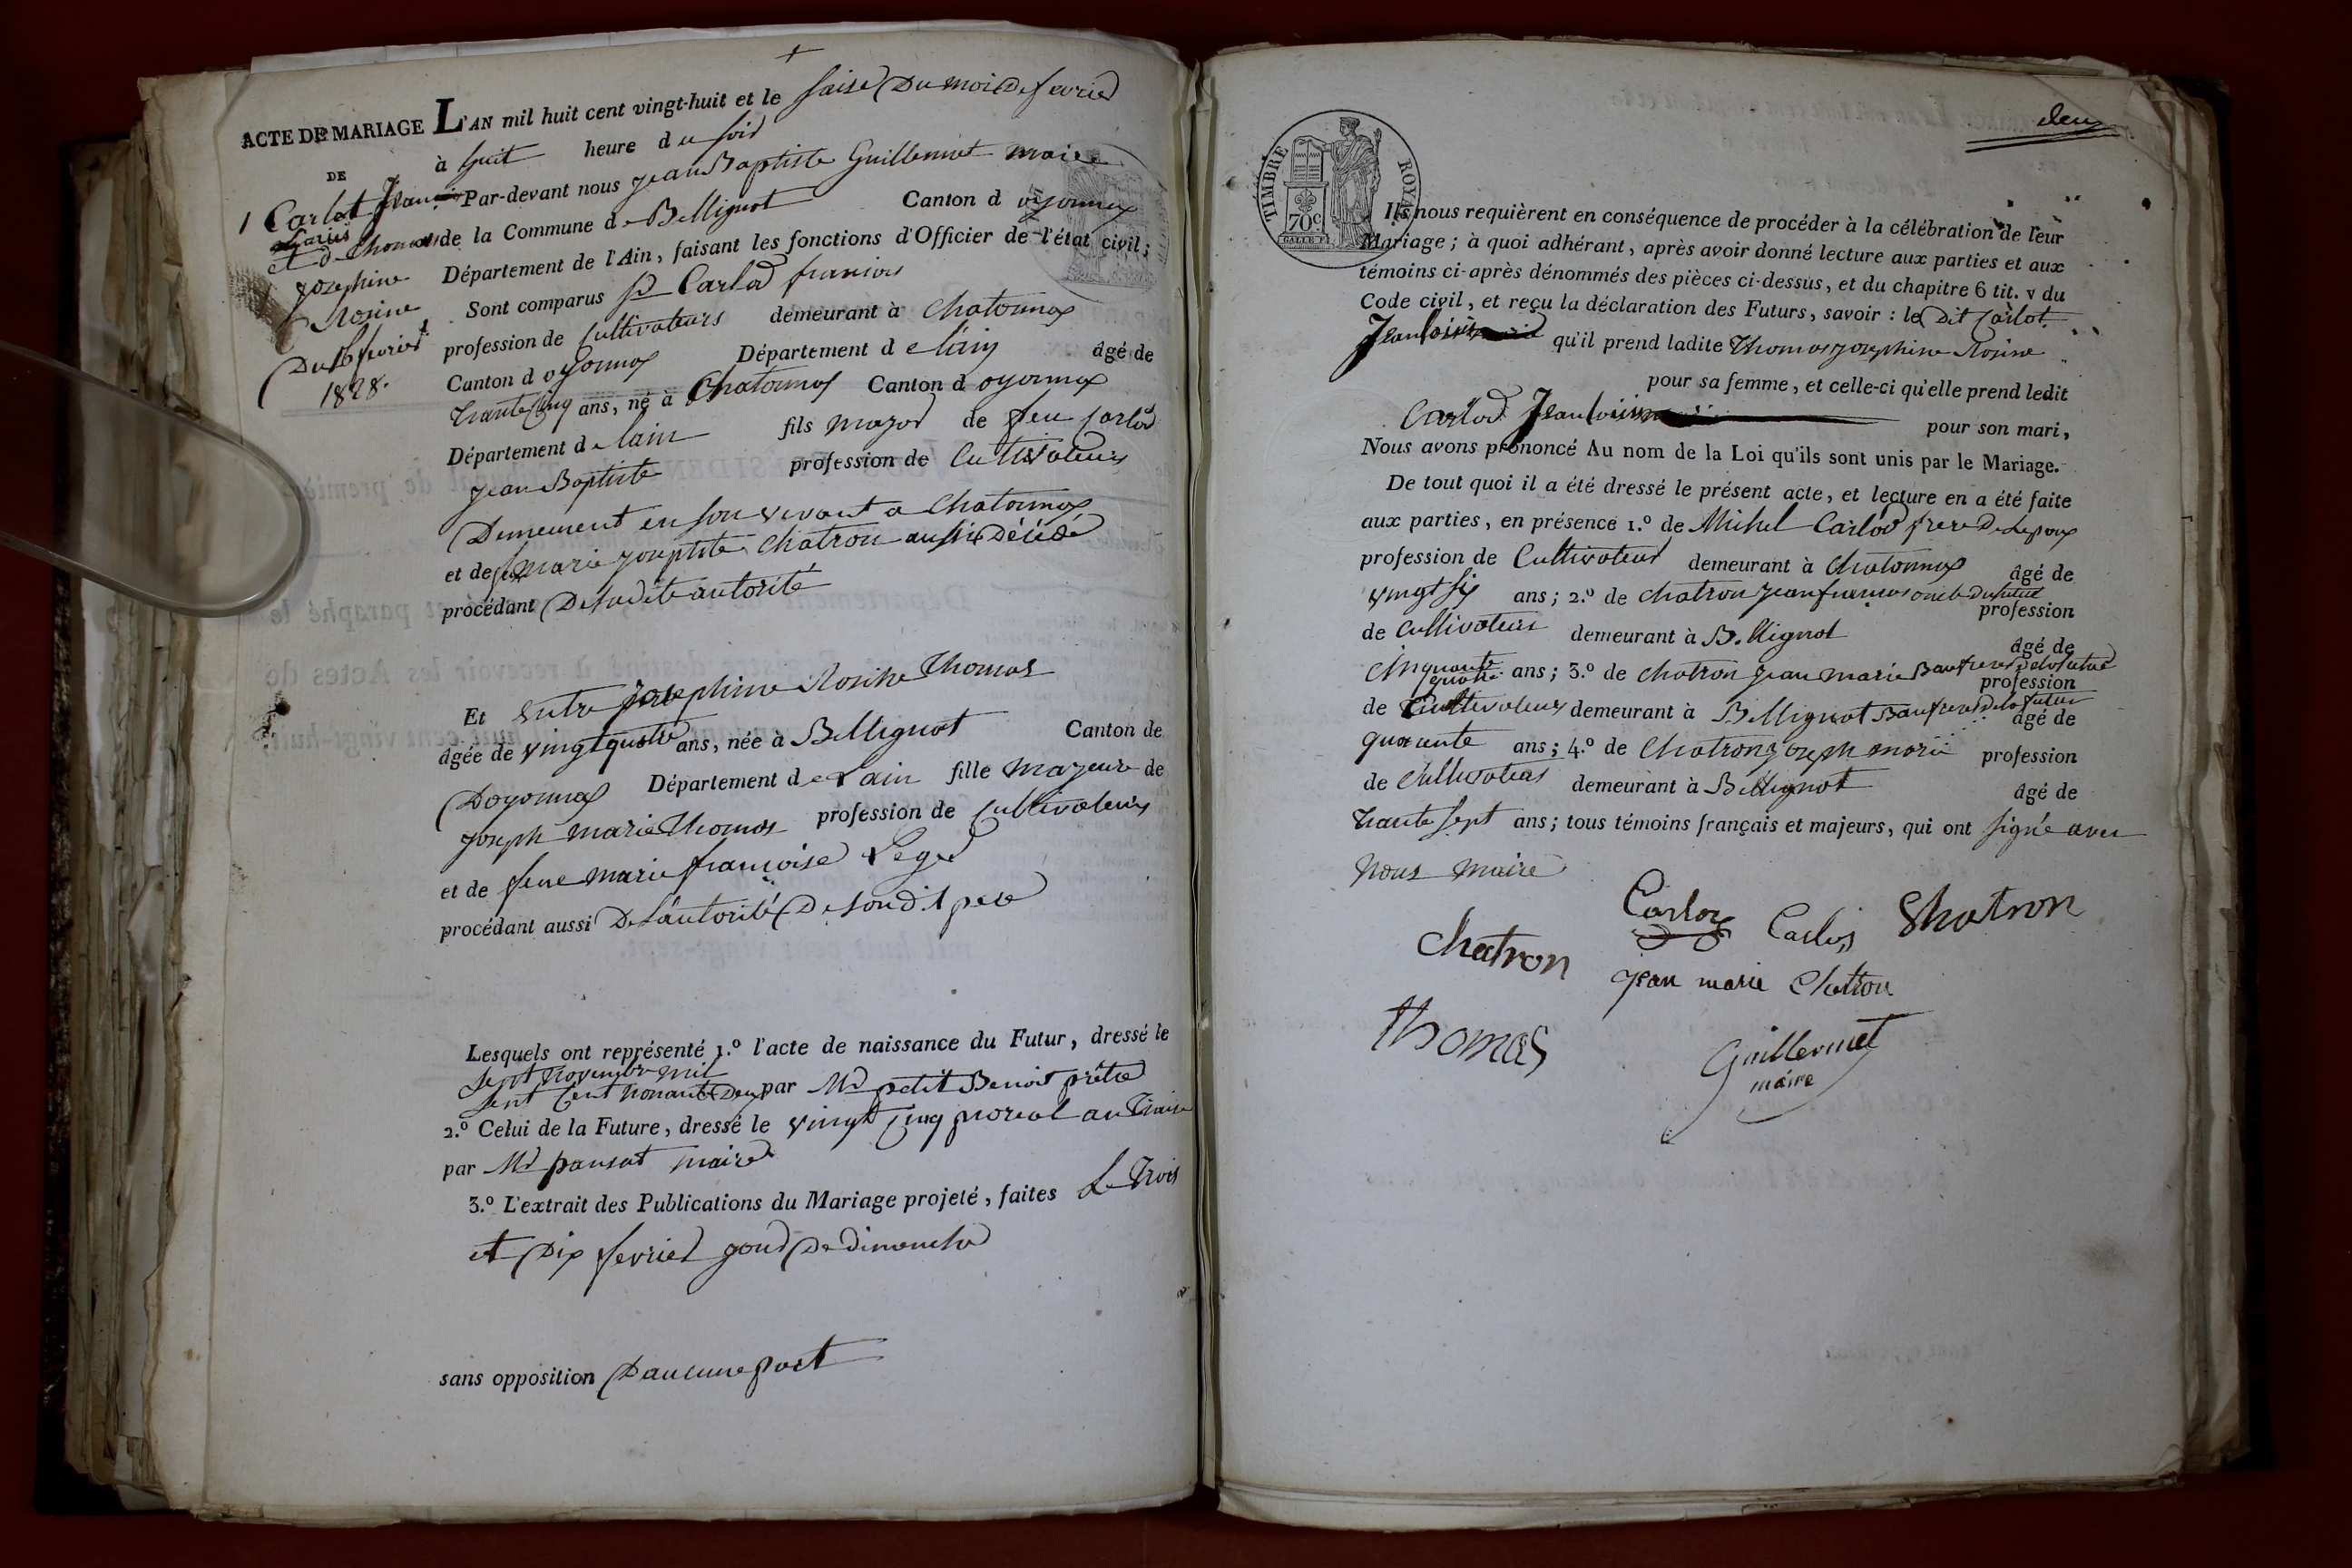 ACTE DE MARIAGE L'AN mil huit cent vingt-huit et le saise Du mois De fevrier
à huit heure du soir
DE
1 Carlot Jean
Par-devant nous jean Baptiste Guillermet maire
et de Thomas
de la Commune de Bellignat Canton d oyonnax
josephine
Département de l'Ain, faisant les fonctions d'Officier de l'état civil;
Rosine
Sont comparus sr Carlod francois
Du 16 fevrier
1828.
profession de Cultivateurs demeurant à Chatonnax
Canton d oyonnax Département de lain âgé de
trante cinq ans, né à Chatonnax Canton d oyonnax
Département de lain fils major de feu Carlod
jean Baptiste profession de Cultivateurs
Demeurent en son vivant a Chatonnax
et de feue marie josephte Chatron aussi Décédé
procédant De sadite autorité
Et entre josephine Rosine Thomas
âgée de vingt quatre ans, née à Bellignat Canton de
Doyonnax Département de Lain fille majeure de
joseph marie Thomas profession de Cultivateurs
et de feue marie francoise Leger
procédant aussi De l'autorité De sondit pere
Lesquels ont représenté 1.º l'acte de naissance du Futur, dressé le
sept novembre mil
sept cent nonante Deux par Mr petit Benoit prêtre
2.º Celui de la Future, dressé le vingt cinq floreal an
par Mr pansat maire
3.º L'extrait des Publications du Mariage projeté, faites Le trois
et Dix fevrier jour De dimanche
sans opposition D'aucune part
deux
TIMBRE ROYAL
70c.
Ils nous requièrent en conséquence de procéder à la célébration de leur
Mariage; à quoi adhérant, après avoir donné lecture aux parties et aux
témoins ci-après dénommés des pièces ci-dessus, et du chapitre 6 tit. v du
Code civil, et reçu la déclaration des Futurs, savoir : le Dit Carlot
Jean qu'il prend ladite Thomas josephine Rosine
pour sa femme, et celle-ci qu'elle prend ledit
Carlod Jean pour son mari,
Nous avons prononcé Au nom de la Loi qu'ils sont unis par le Mariage.
De tout quoi il a été dressé le présent acte, et lecture en a été faite
aux parties, en présence 1.º de Michel Carlod frere De Lepoux
profession de Cultivateur demeurant à Chatonnax âgé de
vingt six ans; 2.º de Chatron jean francois oncle du futur profession
de Cultivateurs demeurant à Bellignat âgé de
Cinquante quatre ans; 3.º de Chatron jean marie Baufrere de la futur profession
de Cultivateurs demeurant à Bellignat Baufrere de la futur âgé de
quarante ans; 4.º de Chatron joseph marie profession
de Cultivateurs demeurant à Bellignat âgé de
trante sept ans; tous témoins français et majeurs, qui ont signé avec
nous maire
Carlod Carlod Chatron
Chatron
jean marie Chatron
thomas
Guillermet
maire